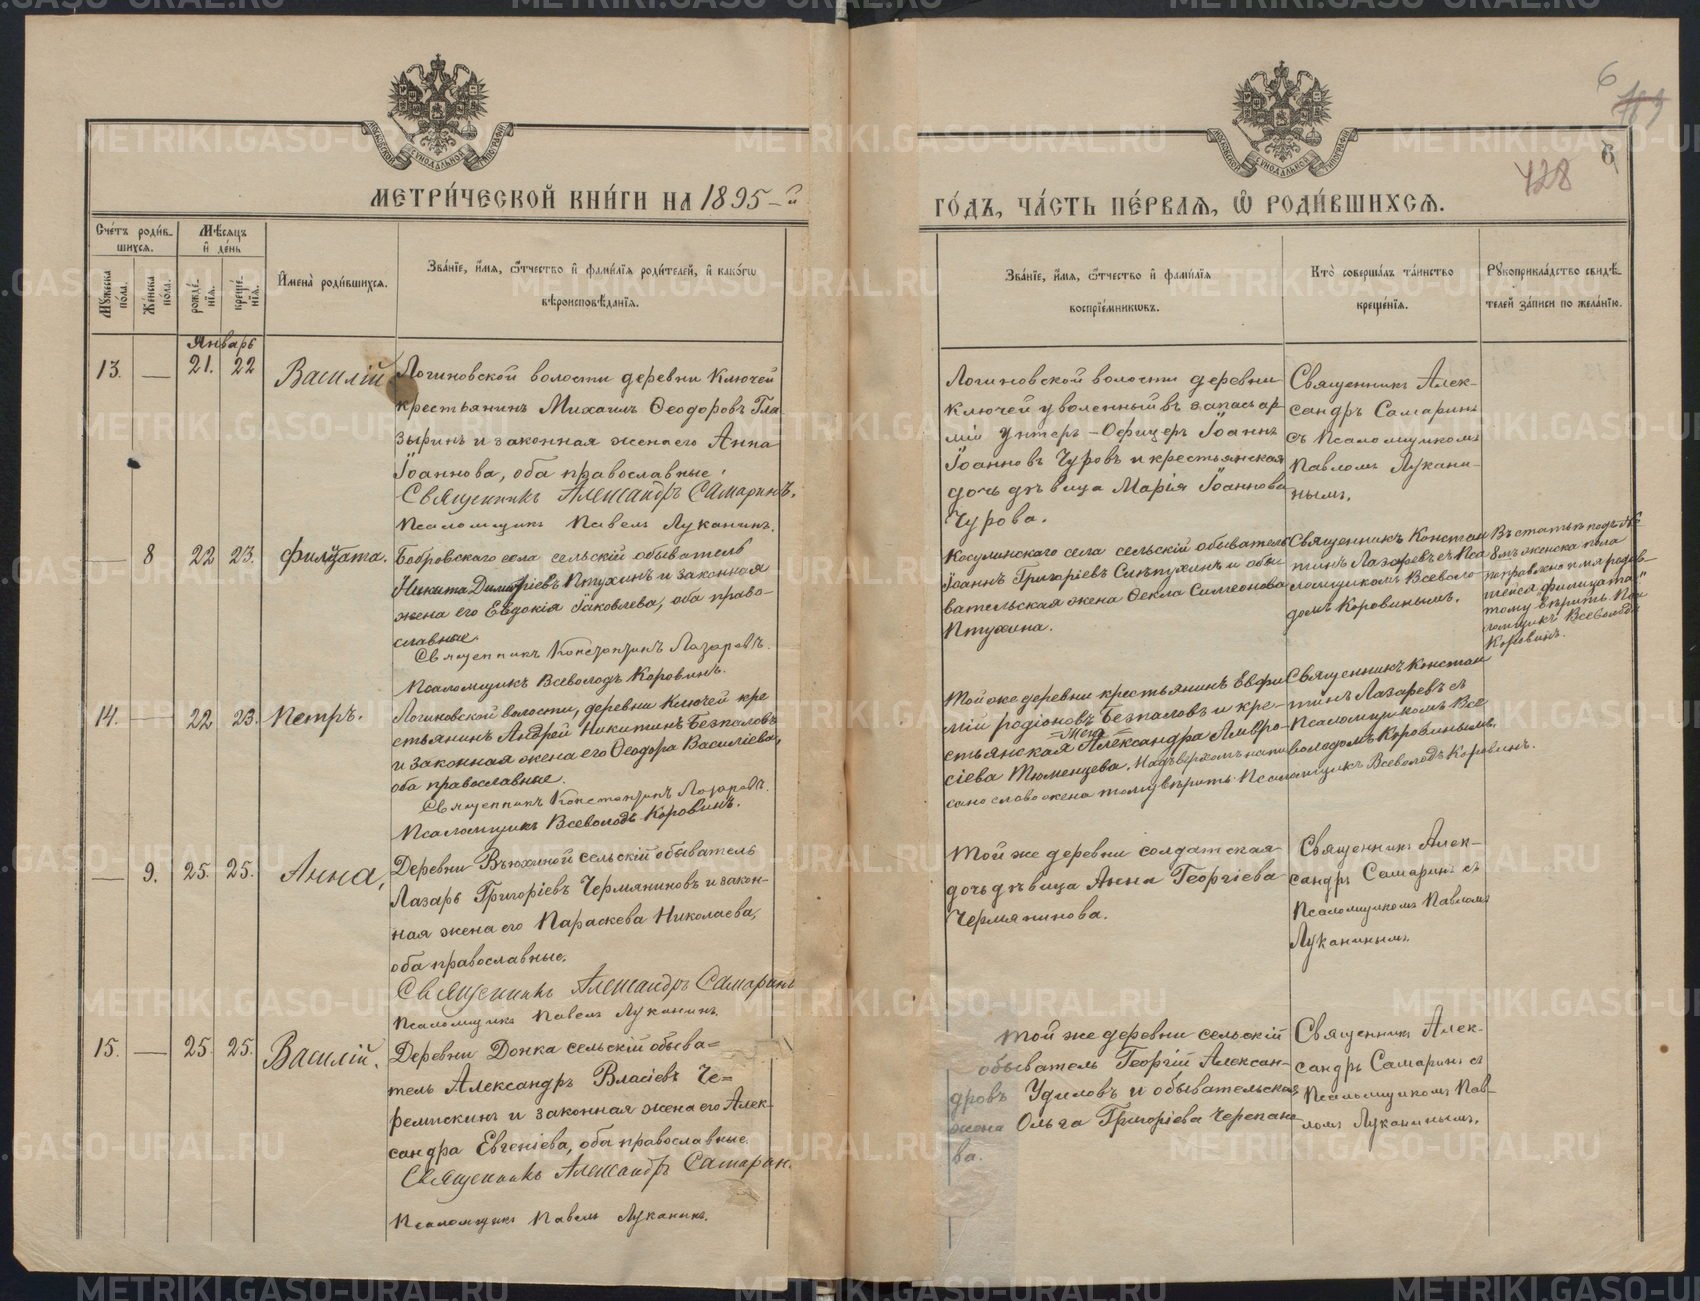 МЕТРИ́ЧЕСКОЙ КНИ́ГИ НА 1895-й
ГО́ДЪ, ЧА́СТЬ ПЕ́РВАЯ, Ѡ РОДИ́ВШИХСЯ.
6
428
6
Сче́тъ роди́в-
шихся.
Му́жеска по́ла.
Же́нска по́ла.
Мѣ́сяцъ
и де́нь
рожде́нія.
креще́нія.
Имена̀ роди́вшихся.
Зва́ніе, и́мя, ѻ́тчество и фами́лія роди́телей, и како́гѡ
вѣроисповѣ́данія.
Зва́ніе, и́мя, ѻ́тчество и фами́лія
воспріе́мникѡвъ.
Кто̀ соверша́лъ та́инство
креще́нія.
Рукоприкла́дство свидѣ́-
телей за́писи по жела́нію.
Январь
13. — 21. 22 Василій
Логиновской волости деревни Ключей
крестьянинъ Михаилъ Ѳеодоровъ Гла-
зыринъ и законная жена его Анна
Іоаннова, оба православные.
Священникъ Александръ Самаринъ.
Псаломщикъ Павелъ Луканинъ.
Логиновской волости деревни
Ключей уволенный въ запасъ ар-
міи Унтеръ-Офицеръ Іоаннъ
Іоанновъ Чуровъ и крестьянская
дочь дѣвица Марія Іоаннова
Чурова.
Священникъ Алек-
сандръ Самаринъ
съ Псаломщикомъ
Павломъ Лукани-
нымъ.
— 8 22 23. Филицата.
Бобровскаго села сельскій обыватель
Никита Димитріевъ Птухинъ и законная
жена его Евдокія Іаковлева, оба право-
славные.
Священникъ Константинъ Лазаревъ.
Псаломщикъ Всеволодъ Коровинъ.
Косулинскаго села сельскій обыватель
Іоаннъ Григоріевъ Снѣтухинъ и обы-
вательская жена Ѳекла Симеонова
Птухина.
Священникъ Констан
тинъ Лазаревъ съ Пса
ломщикомъ Всеволо-
домъ Коровинымъ.
Въ статьѣ подъ №
8мъ женска пола
поправлено имя родив-
шейся „Филицата"
тому вѣрить Пса
ломщикъ Всеволодъ
Коровинъ.
14. — 22 23. Петръ.
Логиновской волости, деревни Ключей кре
стьянинъ Андрей Никитинъ Безпаловъ
и законная жена его Ѳеодора Василіева,
оба православные.
Священникъ Константинъ Лазаревъ.
Псаломщикъ Всеволодъ Коровинъ.
Той же деревни крестьянинъ Евфи
мій Родіоновъ Безпаловъ и кре-
=жена=
стьянская Александра Амвро-
сіева Тюменцева. Надъ верхомъ напи
сано слово жена тому вѣрить Псаломщикъ Всеволодъ Коровинъ.
Священникъ Констан
тинъ Лазаревъ съ
Псаломщикомъ Все
володомъ Коровинымъ.
— 9. 25. 25. Анна,
Деревни Вьюхиной сельскій обыватель
Лазарь Григоріевъ Чермяниновъ и закон-
ная жена его Параскева Николаева,
оба православные.
Священникъ Александръ Самаринъ
Псаломщикъ Павелъ Луканинъ.
Той же деревни солдатская
дочь дѣвица Анна Георгіева
Чермянинова.
Священникъ Алек-
сандръ Самаринъ съ
Псаломщикомъ Павломъ
Луканинымъ.
15. — 25. 25. Василій.
Деревни Донка сельскій обыва=
тель Александръ Власіевъ Че=
ремискинъ и законная жена его Алек-
сандра Евгеніева, оба православные.
Священникъ Александръ Самарин.
Псаломщикъ Павелъ Луканинъ.
Той же деревни сельскій
обыватель Георгій Алексан-
дровъ Удиловъ и обывательская
жена Ольга Григоріева Черепано
ва.
Священникъ Алек-
сандръ Самаринъ съ
Псаломщикомъ Пав-
ломъ Луканинымъ.
METRIKI.GASO-URAL.RU